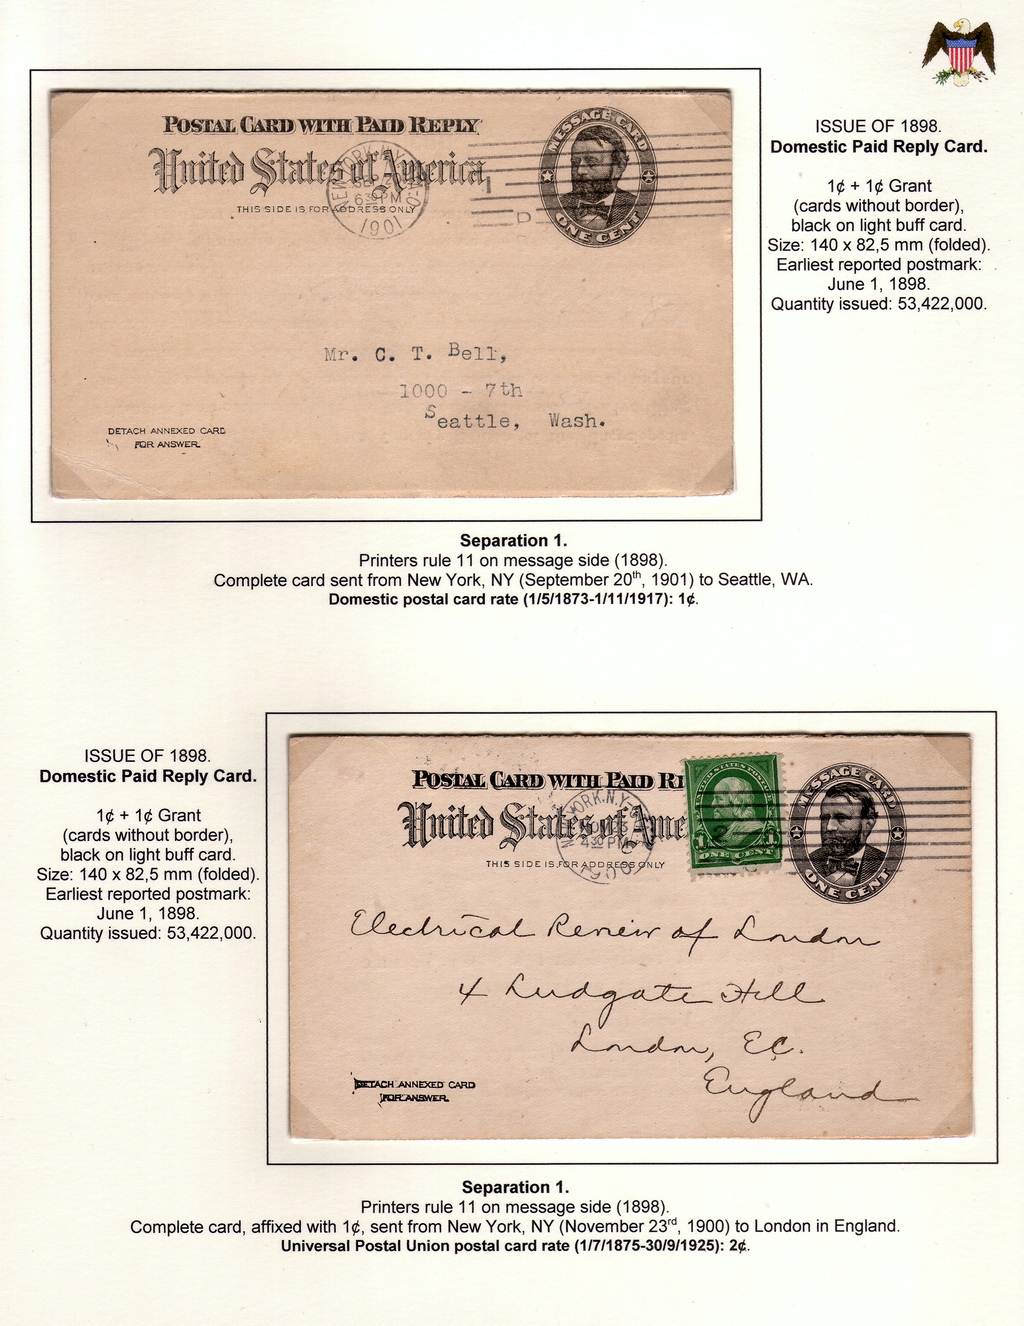 POSTAL CARD WITH PAID REPLY
United States of America
THIS SIDE IS FOR ADDRESS ONLY
NEW YORK, N.Y.
630PM
1901
1
D
MESSAGE CARD
ONE CENT
Mr. C. T. Bell,
1000 - 7th
Seattle, Wash.
DETACH ANNEXED CARD
FOR ANSWER.
ISSUE OF 1898.
Domestic Paid Reply Card.
1¢ + 1¢ Grant
(cards without border),
black on light buff card.
Size: 140 x 82,5 mm (folded).
Earliest reported postmark:
June 1, 1898.
Quantity issued: 53,422,000.
Separation 1.
Printers rule 11 on message side (1898).
Complete card sent from New York, NY (September 20th, 1901) to Seattle, WA.
Domestic postal card rate (1/5/1873-1/11/1917): 1¢.
ISSUE OF 1898.
Domestic Paid Reply Card.
1¢ + 1¢ Grant
(cards without border),
black on light buff card.
Size: 140 x 82,5 mm (folded).
Earliest reported postmark:
June 1, 1898.
Quantity issued: 53,422,000.
POSTAL CARD WITH PAID RE
United States of Ame
THIS SIDE IS FOR ADDRESS ONLY
NEW YORK, N.Y.
430PM
1900
2
UNITED STATES POSTAGE
1 1
ONE CENT
MESSAGE CARD
ONE CENT
Electrical Review of London
4 Ludgate Hill
London, E.C.
England
DETACH ANNEXED CARD
FOR ANSWER.
Separation 1.
Printers rule 11 on message side (1898).
Complete card, affixed with 1¢, sent from New York, NY (November 23rd, 1900) to London in England.
Universal Postal Union postal card rate (1/7/1875-30/9/1925): 2¢.